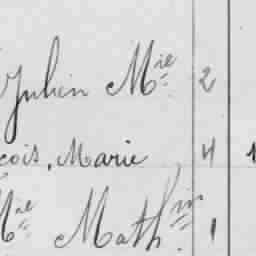 Julien Mie 2
çois, Marie 4 1
Mie Math.in 1